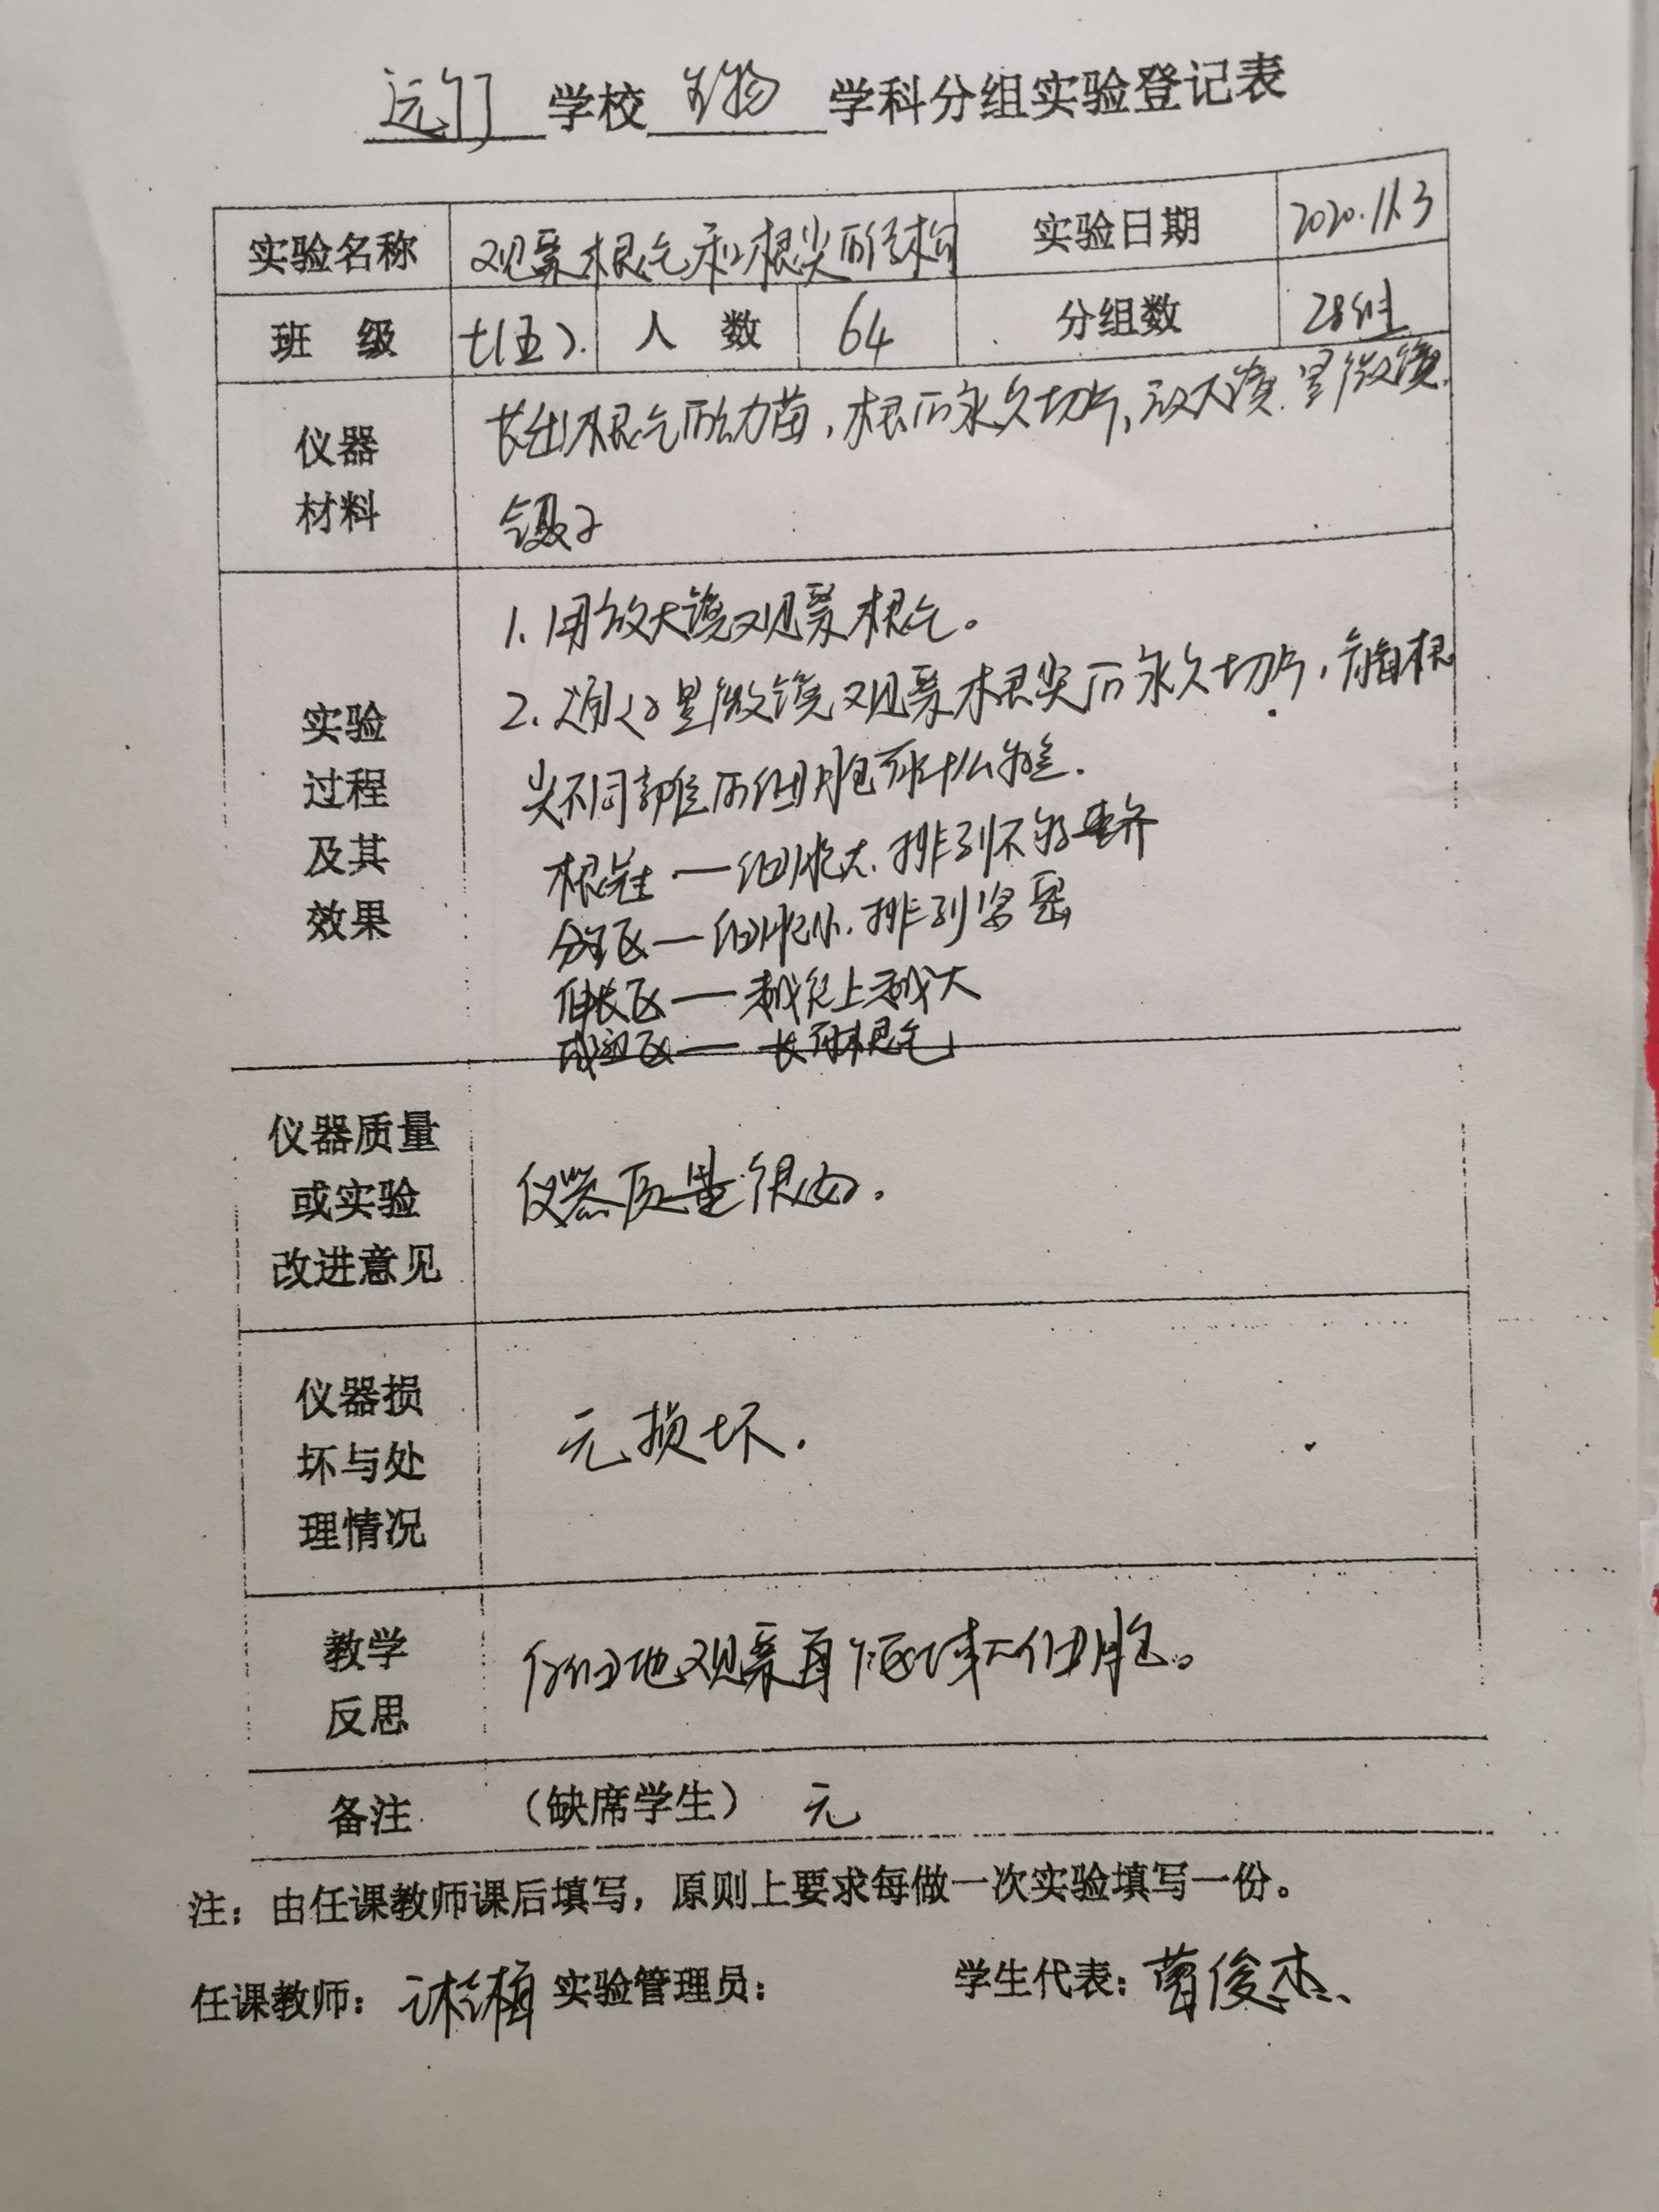 远门 学校 生物 学科分组实验登记表
实验名称 观察根毛和根尖的结构 实验日期 2020.11.3
班 级 七(五). 人 数 64 分组数 28组
仪器材料 长出根毛的幼苗,根的永久切片,放大镜.显微镜.
镊子
实验过程及其效果 1.用放大镜观察根毛。
2.通过显微镜观察根尖的永久切片,看看根
尖不同部位的细胞有什么特点.
根冠 — 细胞大.排列不够整齐
分生区 — 细胞小.排列紧密
伸长区 — 越往上越大
成熟区 — 长有根毛
仪器质量或实验改进意见 仪器质量很好.
仪器损坏与处理情况 无损坏.
教学反思 仔细地观察每个区域的细胞。
备注 (缺席学生) 无
注:由任课教师课后填写,原则上要求每做一次实验填写一份。
任课教师: 实验管理员: 学生代表:曾俊杰